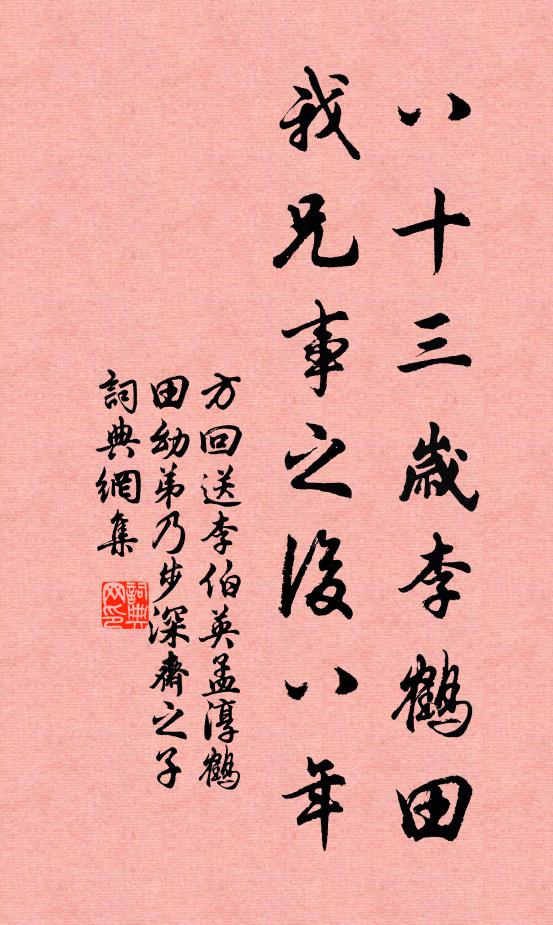 八十三歲李鶴田
我兄事之後八年
方回送李伯英孟淳鶴
田幼弟乃步深齋之子
詞典網集
詞典網印